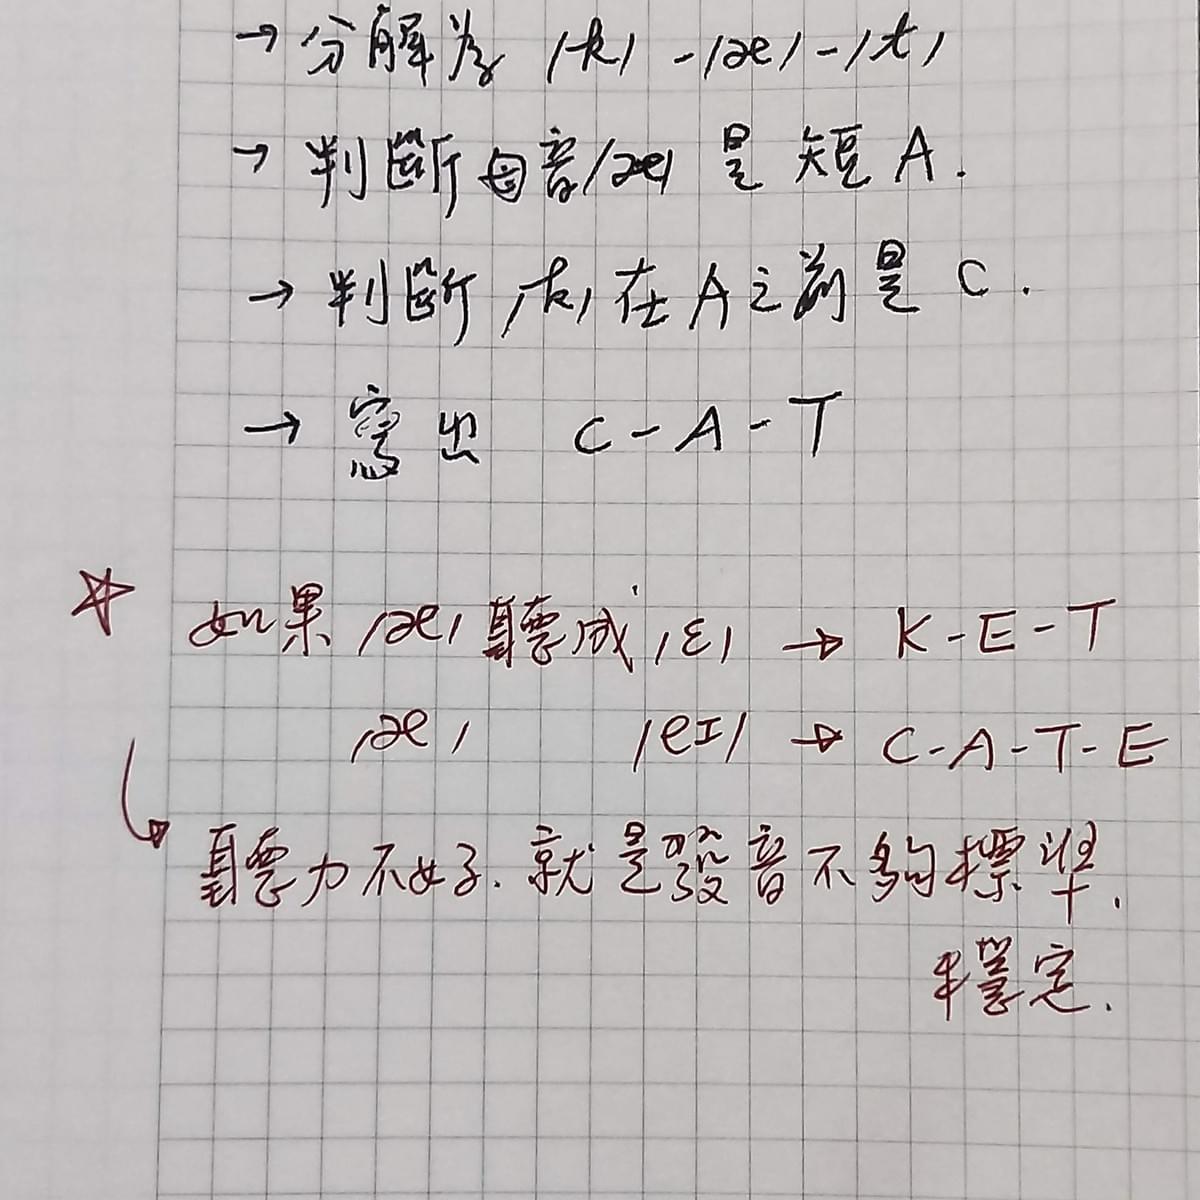 → 分解為 /k/ - /æ/ - /t/
→ 判斷母音/æ/ 是 短 A.
→ 判斷 /k/ 在 A 之前是 C.
→ 寫出 C - A - T
☆ 如果 /æ/ 聽成 /ɛ/ → K - E - T
/æ/ /eɪ/ → C - A - T - E
↳ 聽力不好. 就是發音不夠標準.
穩定.